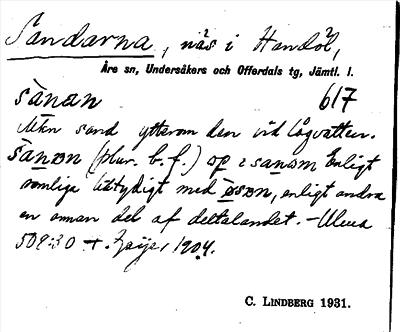 Sandarna, näs i Handöl,
Åre sn, Undersåkers och Offerdals tg, Jämtl. l.
sànan 617
sand ytterom den vid lågvatten.
sànøn (plur. b.f.) op i sanøm Enligt
somliga liktydigt med øsøn, enligt andra
en annan del af deltalandet. –
509:30 1904.
C. LINDBERG 1931.